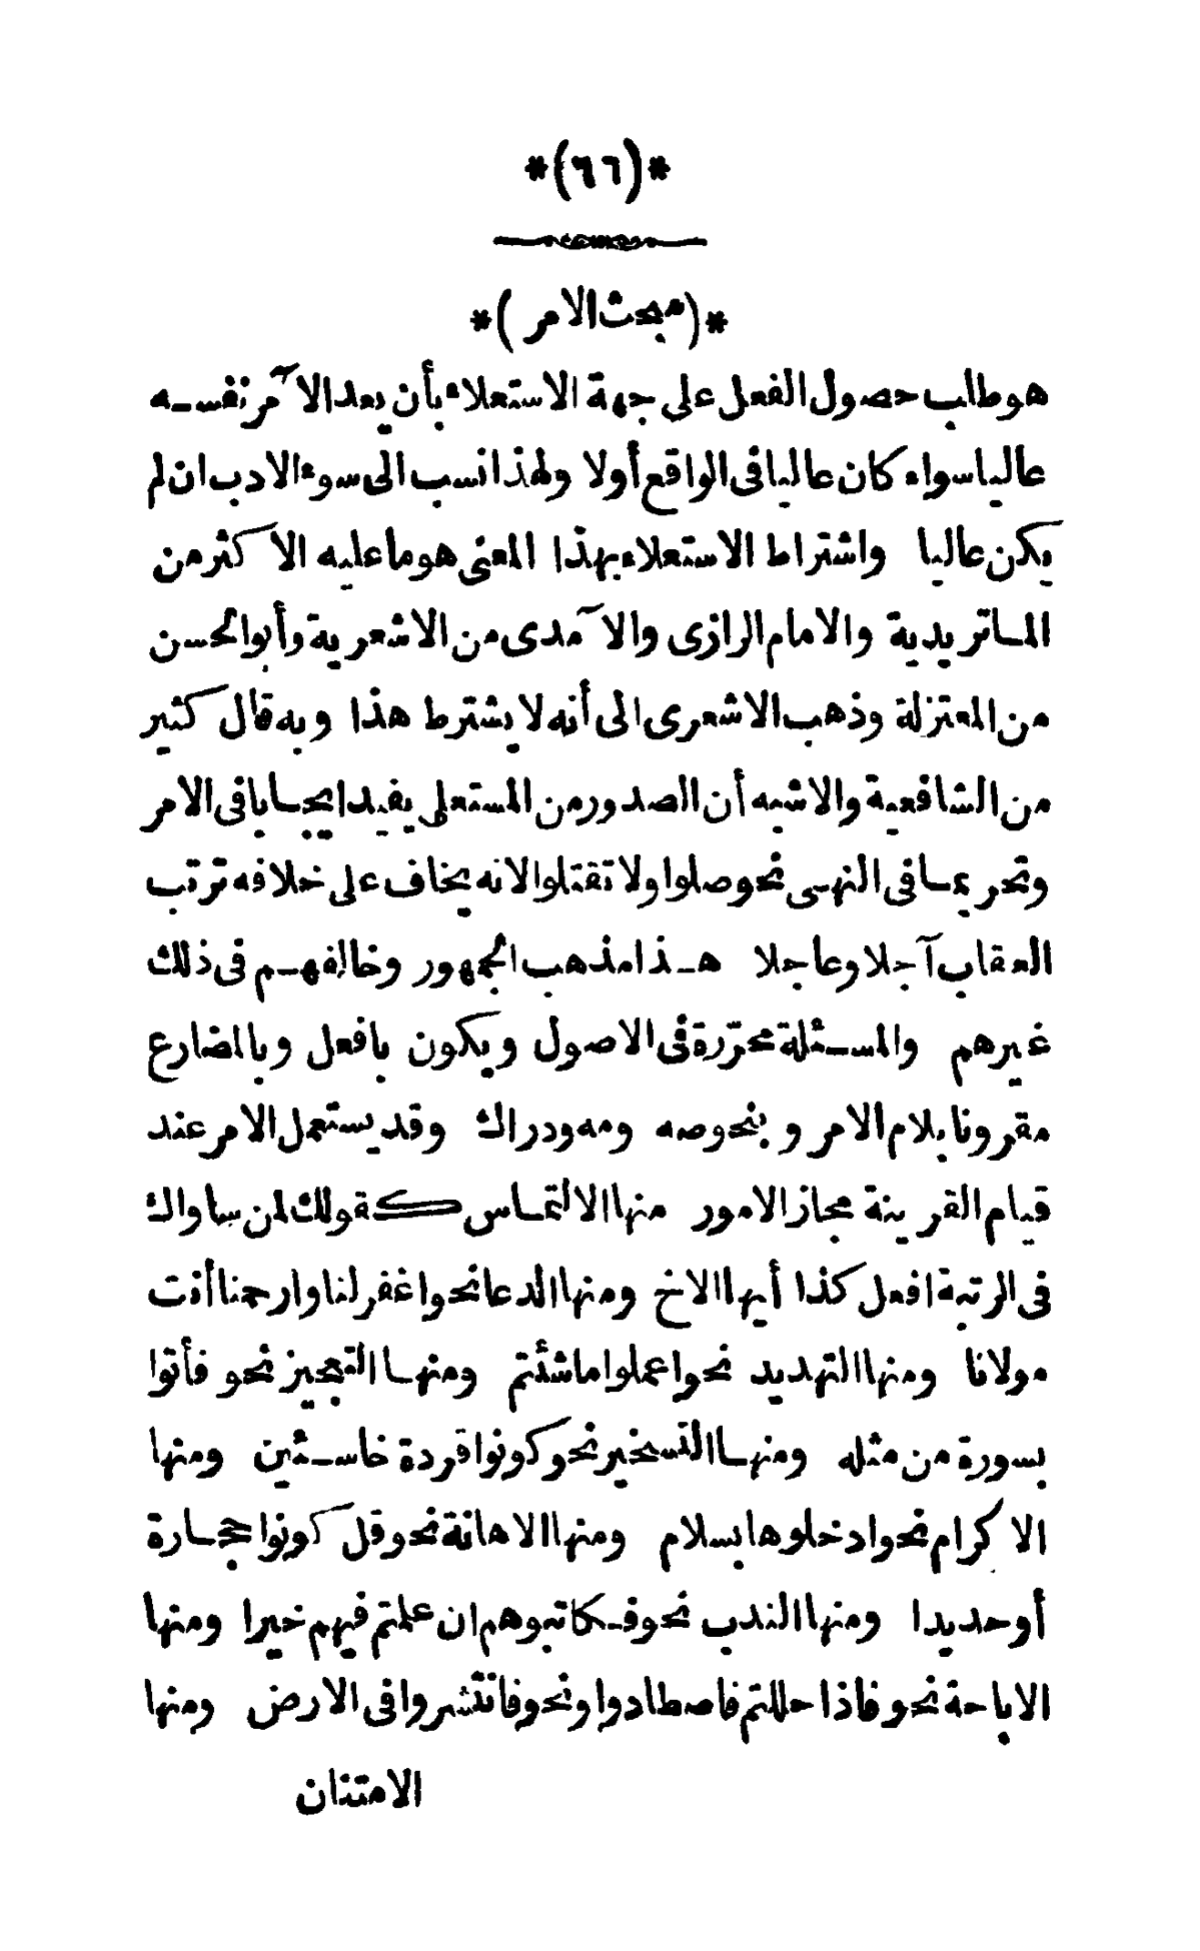 *(٦٦)*
*(مبحث الامر)*
هو طلب حصول الفعل على جهة الاستعلاء بأن يعد الآمر نفسه
عاليا سواء كان عاليا فى الواقع أولا ولهذا نسب الى سوء الادب ان لم
يكن عاليا واشتراط الاستعلاء بهذا المعنى هو ما عليه الاكثر من
الماتريدية والامام الرازى والآمدى من الاشعرية وأبو الحسن
من المعتزلة وذهب الاشعرى الى أنه لا يشترط هذا وبه قال كثير
من الشافعية والاشبه أن الصدور من المستعلى يفيد ايجابا فى الامر
وتحريما فى النهى نحو صلوا ولا تقتلوا لانه يخاف على خلافه ترتب
العقاب آجلا وعاجلا هذا مذهب الجمهور وخالفهم فى ذلك
غيرهم والمسئلة محرّرة فى الاصول ويكون بافعل وبالمضارع
مقرونا بلام الامر وبنحو صه ومه ودراك وقد يستعمل الامر عند
قيام القرينة مجاز الامور منها الالتماس كقولك لمن ساواك
فى الرتبة افعل كذا أيها الاخ ومنها الدعا نحو اغفر لنا وارحمنا أنت
مولانا ومنها التهديد نحو اعملوا ما شئتم ومنها التعجيز نحو فأتوا
بسورة من مثله ومنها التسخير نحو كونوا قردة خاسئين ومنها
الاكرام نحو ادخلوها بسلام ومنها الاهانة نحو قل كونوا حجارة
أو حديدا ومنها الندب نحو فكاتبوهم ان علمتم فيهم خيرا ومنها
الاباحة نحو فاذا حللتم فاصطادوا ونحو فانتشروا فى الارض ومنها
الامتنان